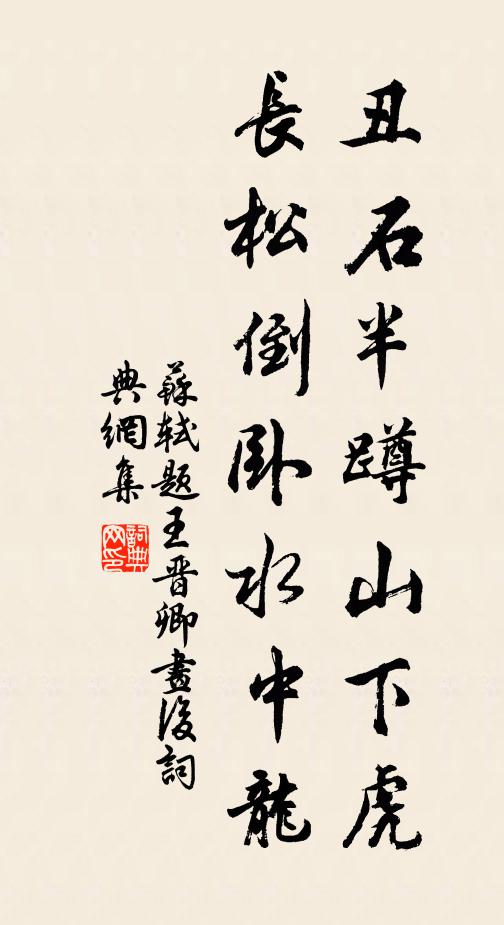 丑石半蹲山下虎
長松倒卧水中龍
蘇軾題王晋卿畫後詞
典網集
詞典网印